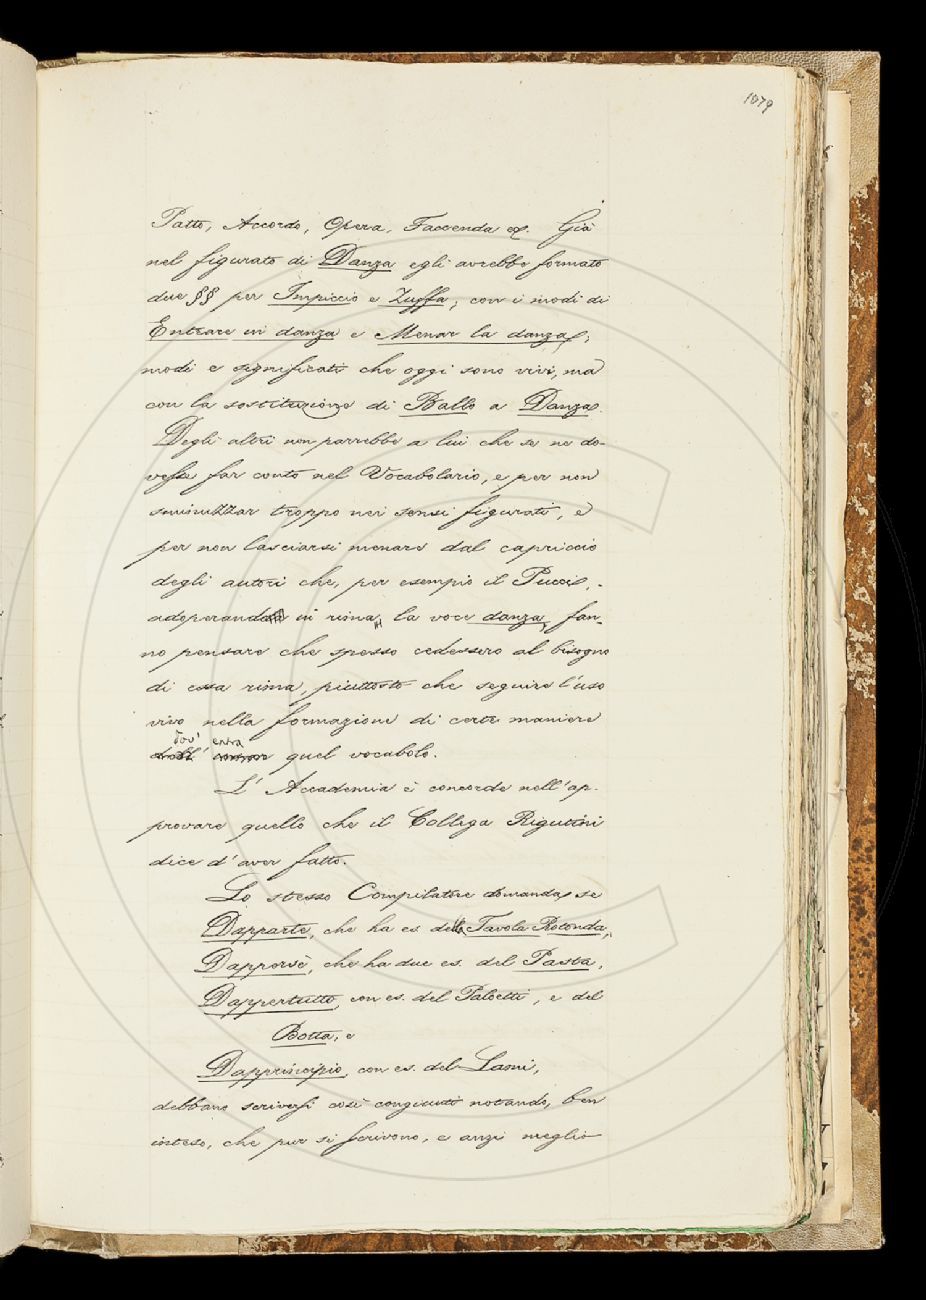 1079
Patto, Accordo, Opera, Faccenda ec. Già
nel figurato di Danza egli avrebbe formato
due §§ per Impiccio e Zuffa, con i modi di
Entrare in danza e Menar la danza;
modi e significati che oggi sono vivi, ma
con la sostituzione di Ballo a Danza.
Degli altri non parrebbe a lui che se ne do-
vesse far conto nel Vocabolario, e per non
sminuzzar troppo nei sensi figurati, e
per non lasciarsi menare dal capriccio
degli autori che, per esempio il Pucci,
adoperando in rima la voce danza, fan-
no pensare che spesso cedessero al bisogno
di essa rima, piuttosto che seguire l'uso
vivo nella formazione di certe maniere
dov' entra quel vocabolo.
L' Accademia è concorde nell'ap-
provare quello che il Collega Rigutini
dice d'aver fatto.
Lo stesso Compilatore domanda se
Dapparte, che ha es. della Tavola Rotonda,
Dapporsè, che ha due es. del Pasta,
Dappertutto, con es. del Falcetti, e del
Botta, e
Dapprincipio, con es. del Lami,
debbano scriversi così congiunti notando, ben
inteso, che pur si scrivono, e anzi meglio